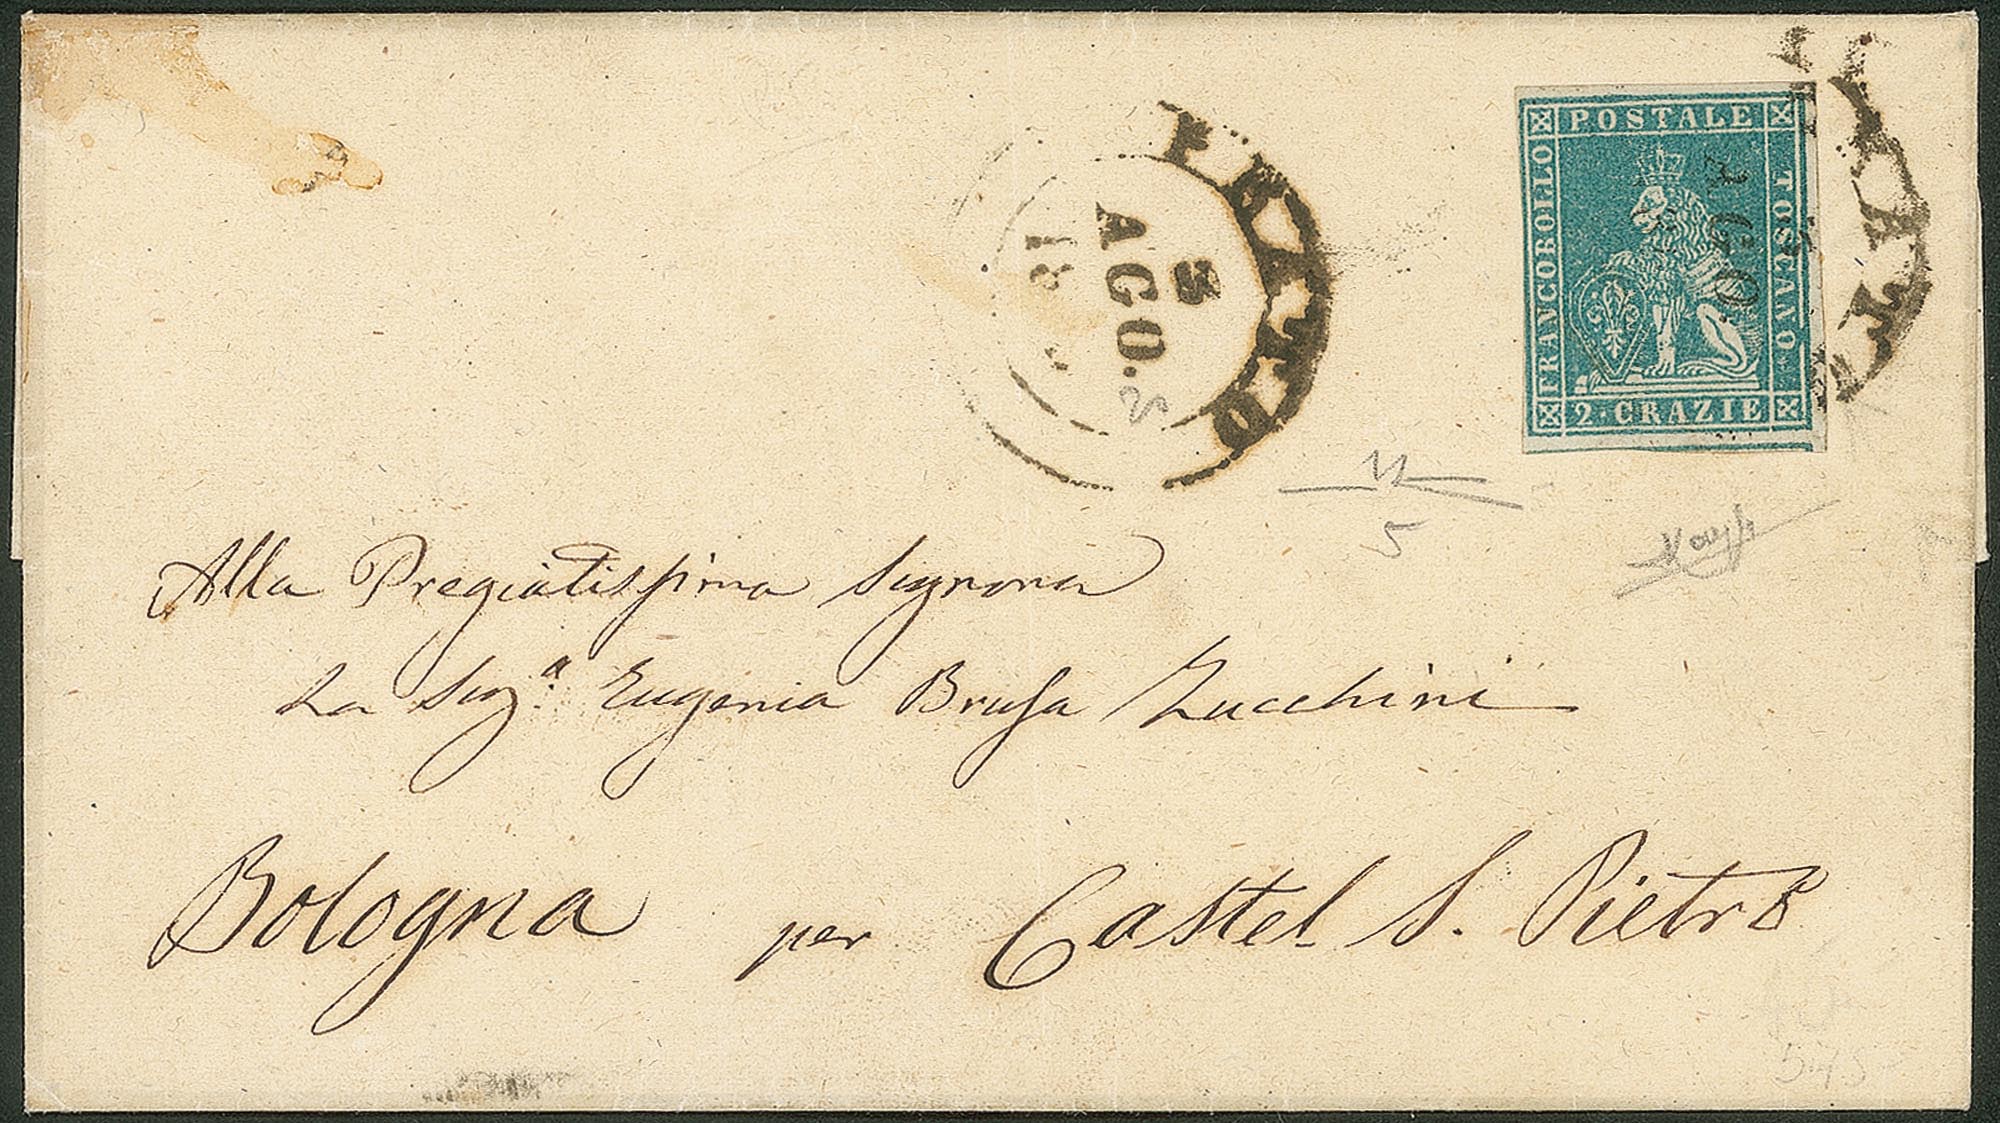 PRATO
3
AGO.
18
POSTALE
FRANCOBOLLO
TOSCANO
2 CRAZIE
AGO.
5
Alla Pregiatissima Signora
La Sig.a Eugenia Brusa Zucchini
Bologna per Castel S. Pietro
545